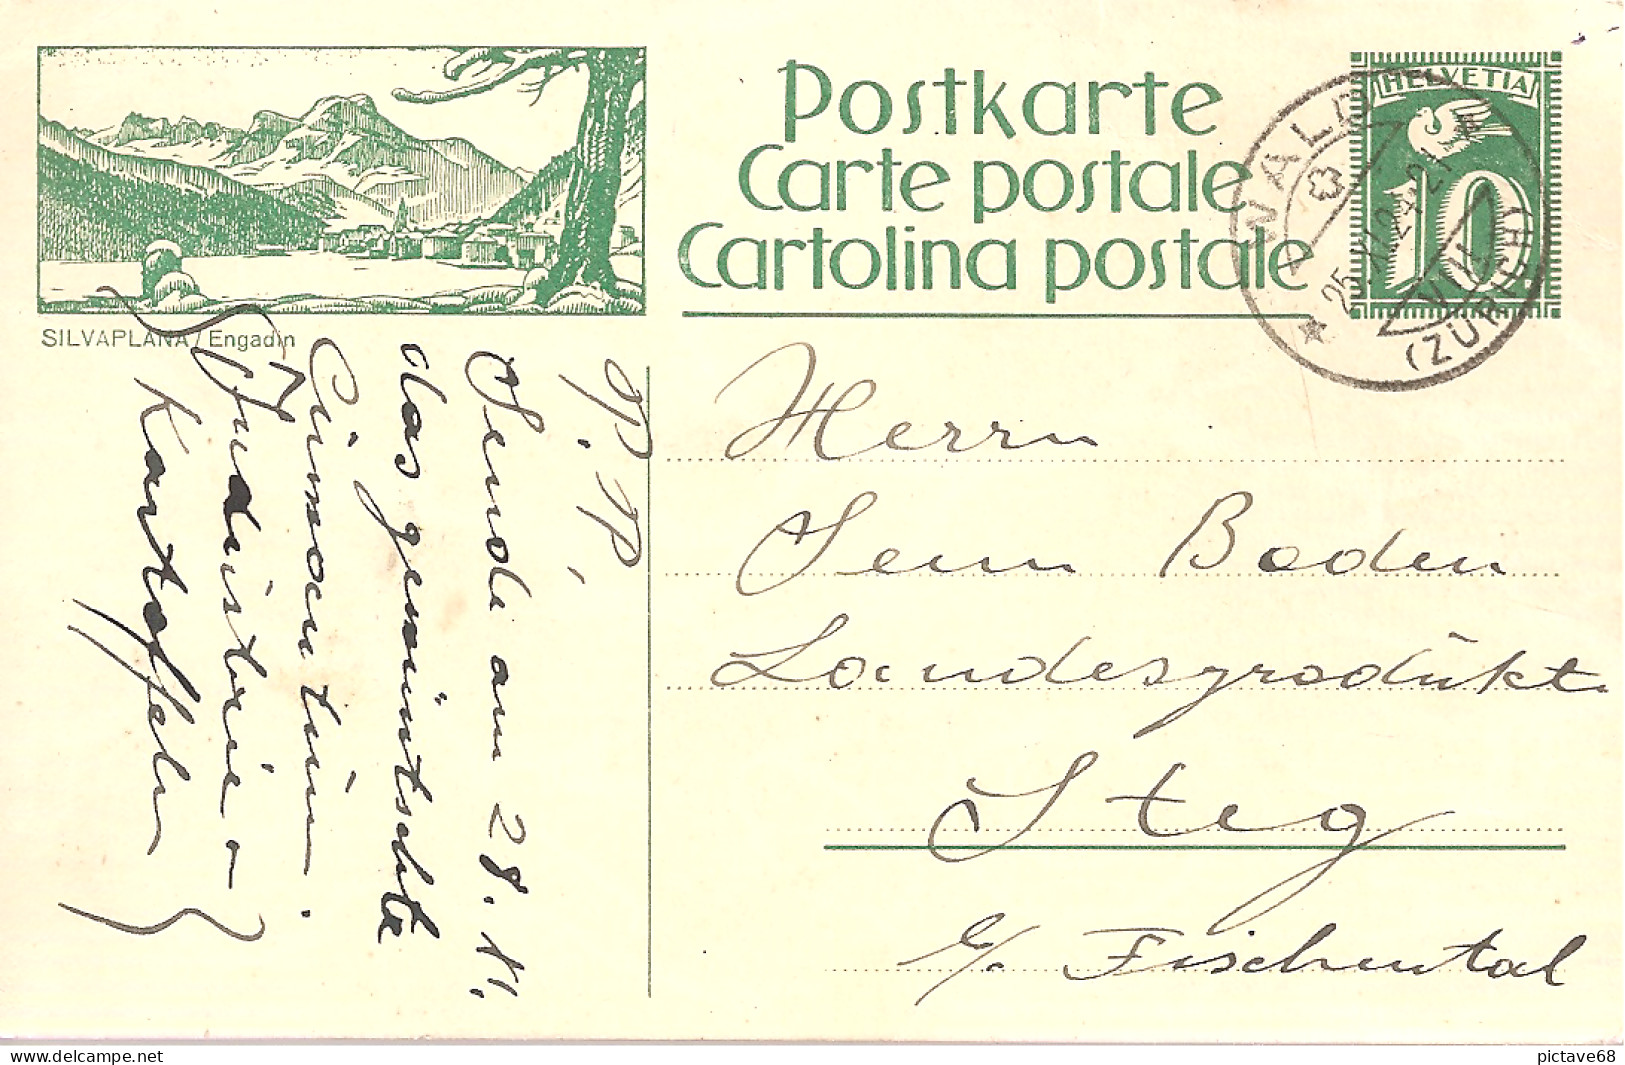 Postkarte
Carte postale
Cartolina postale
HELVETIA
10
WALD
25. XI. 24. 21
VIII
(ZÜRICH)
SILVAPLANA / Engadin
P. P.
Sende am 28. XI.
das gewünschte
Quantum
Industrie -
Kartoffeln
Herrn
Senn Boden
Landesprodukt.
Steg
Fischental
delcampe.net
pictave68